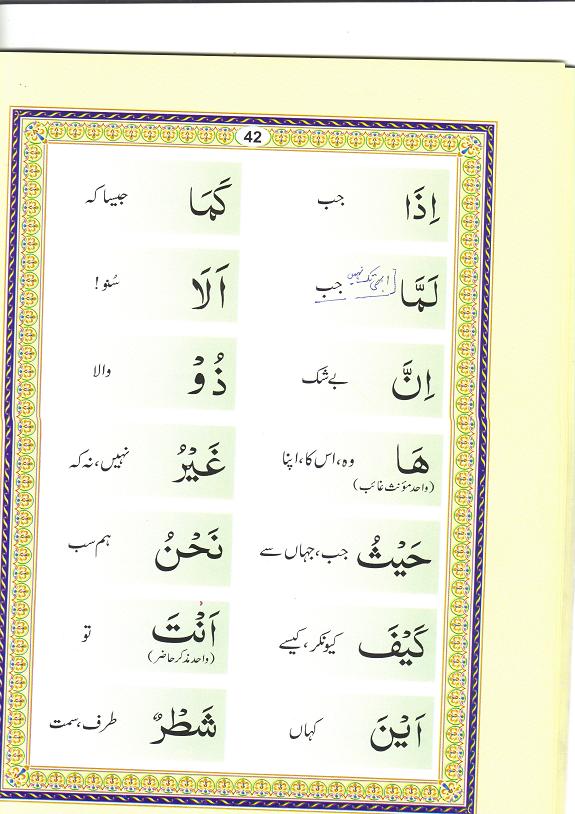 42
اِذَا جب كَمَا جیسا کہ
لَمَّا جب ابھی تک نہیں اَلَا سُنو!
اِنَّ بے شک ذُوْ والا
هَا وہ، اس کا، اپنا غَيْرُ نہیں، نہ کہ
(واحد مؤنث غائب)
حَيْثُ جب، جہاں سے نَحْنُ ہم سب
كَيْفَ کیونکر، کیسے اَنْتَ تو
(واحد مذکر حاضر)
اَيْنَ کہاں شَطْرٌ طرف، سمت